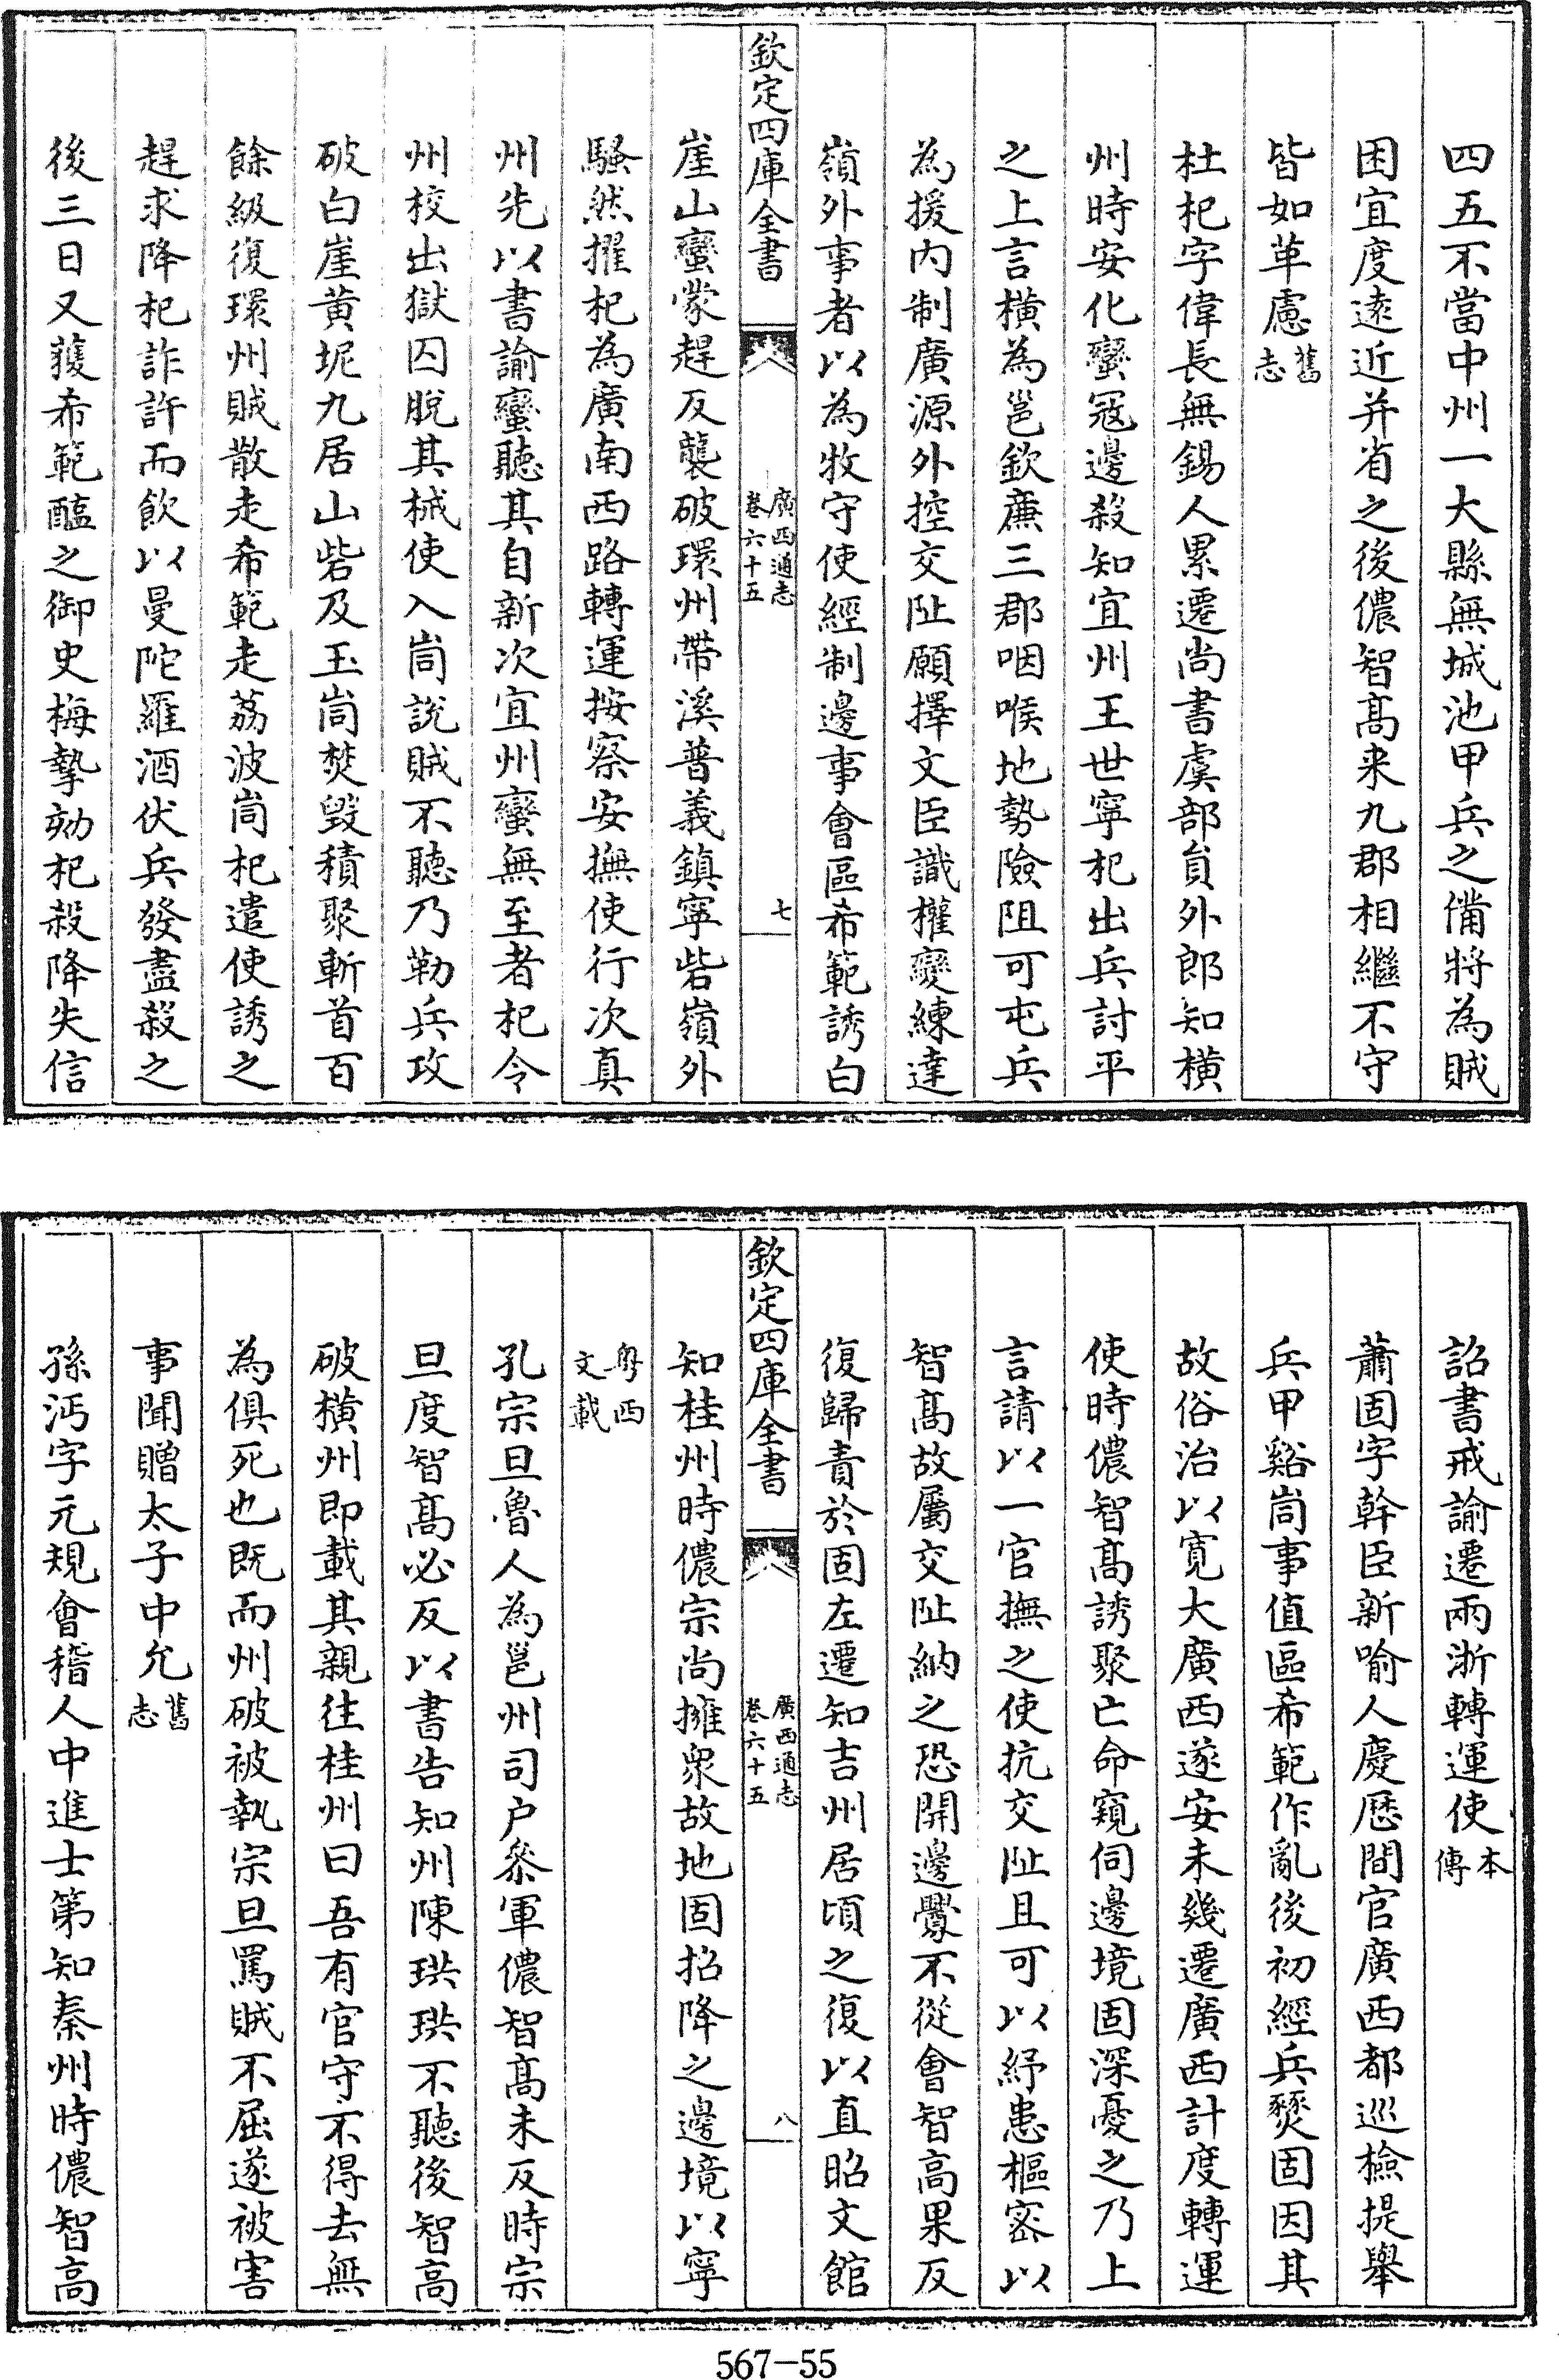 四五不當中州一大縣無城池甲兵之備將為賊
困宜度逺近并省之後儂智髙来九郡相繼不守
皆如革慮舊志
杜杞字偉長無錫人累遷尚書虞部員外郎知橫
州時安化蠻冦邊殺知宜州王世寧杞出兵討平
之上言橫為邕欽亷三郡咽喉地勢險阻可屯兵
為援内制廣源外控交阯願擇文臣識權變練達
嶺外事者以為牧守使經制邊事會區希範誘白
欽定四庫全書
廣西通志
卷六十五
七
崖山蠻蒙趕反襲破環州帶溪普義鎮寧砦嶺外
騷然擢杞為廣南西路轉運按察安撫使行次真
州先以書諭蠻聽其自新次宜州蠻無至者杞令
州校出獄囚脱其械使入峝説賊不聽乃勒兵攻
破白崖黄坭九居山砦及玉峝焚毁積聚斬首百
餘級復環州賊散走希範走荔波峝杞遣使誘之
趕求降杞詐許而飲以曼陀羅酒伏兵發盡殺之
後三日又獲希範醢之御史梅摯劾杞殺降失信
詔書戒諭遷兩浙轉運使本傳
蕭固字幹臣新喻人慶厯間官廣西都巡檢提舉
兵甲谿峝事值區希範作亂後初經兵燹固因其
故俗治以寛大廣西遂安未幾遷廣西計度轉運
使時儂智髙誘聚亡命窺伺邊境固深憂之乃上
言請以一官撫之使抗交阯且可以紓患樞密以
智髙故屬交阯納之恐開邊釁不從會智高果反
復歸責於固左遷知吉州居頃之復以直昭文館
欽定四庫全書
廣西通志
卷六十五
八
知桂州時儂宗尚擁衆故地固招降之邊境以寧
粤西文載
孔宗旦魯人為邕州司户叅軍儂智髙未反時宗
旦度智髙必反以書告知州陳珙珙不聽後智高
破横州即載其親往桂州曰吾有官守不得去無
為俱死也既而州破被執宗旦罵賊不屈遂被害
事聞贈太子中允舊志
孫沔字元規會稽人中進士第知秦州時儂智高
567-55